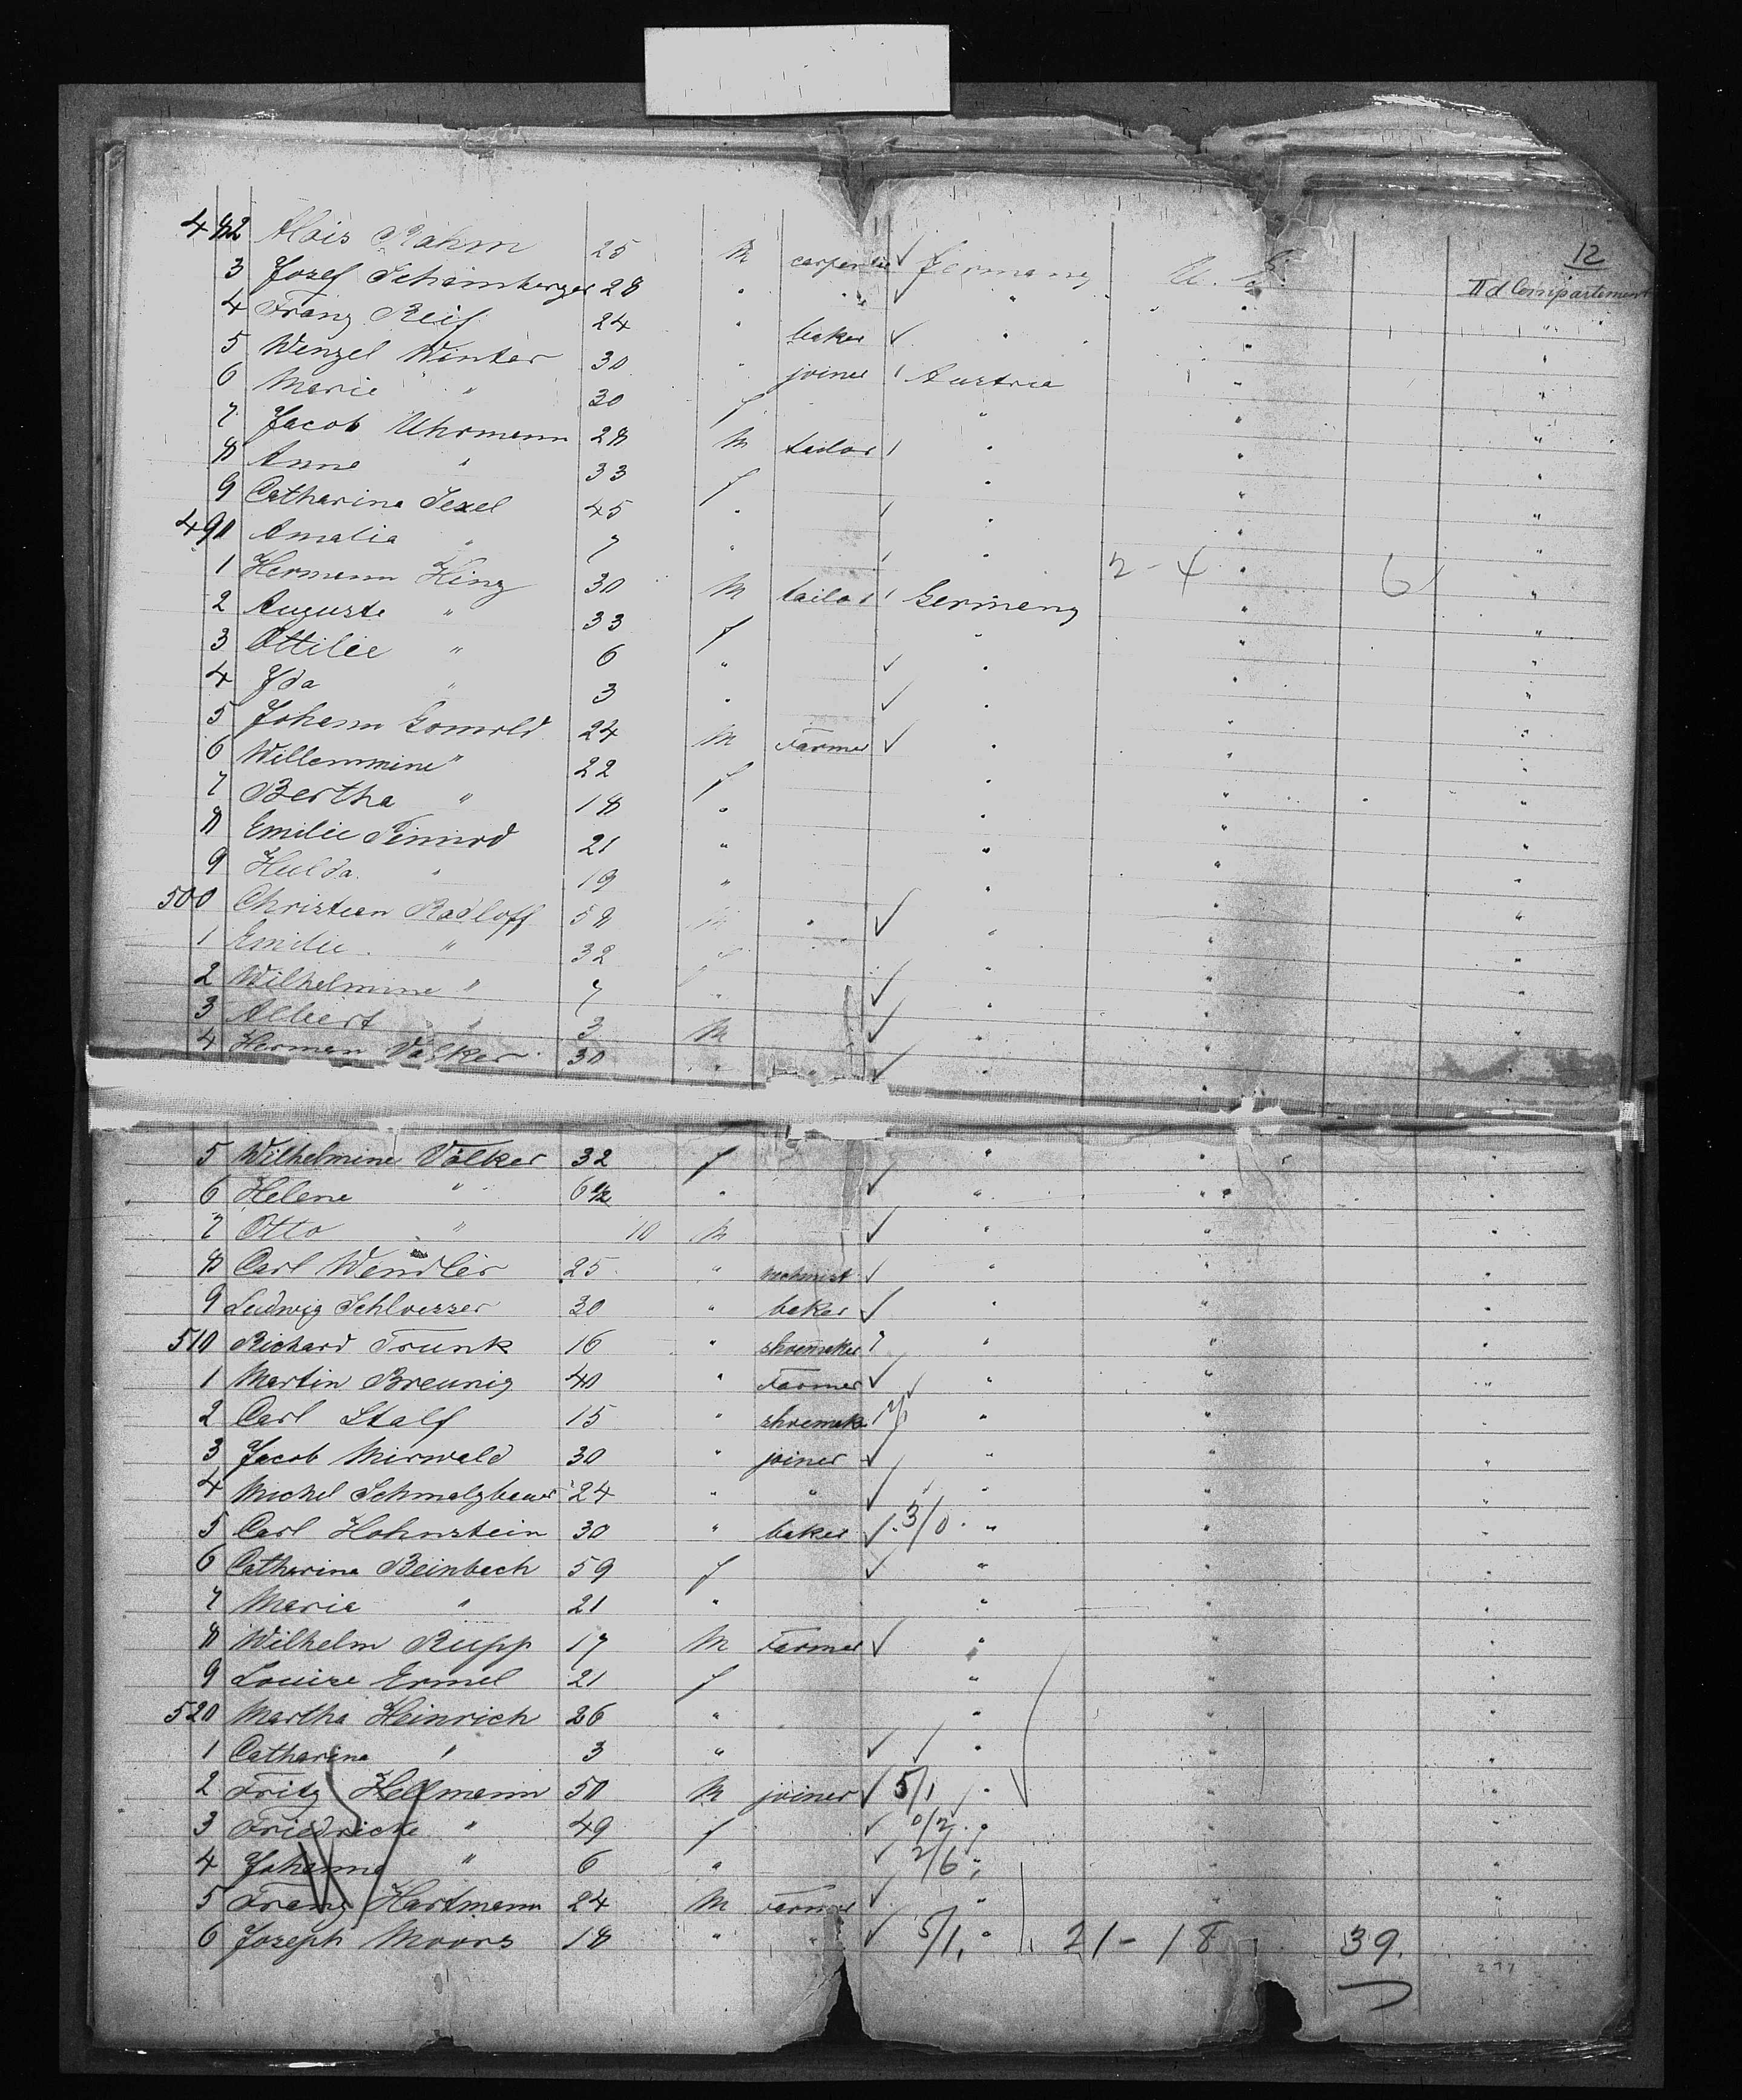 12
482 Alois Rahm 25 M carpenter ✓ Germany U. S. IId Compartiment
3 Josef Schamberger 28 " " ✓ " " "
4 Franz Reif 24 " baker ✓ " " "
5 Wenzel Winter 30 " joiner Austria " "
6 Marie " 30 f " " "
7 Jacob Uhrmann 28 M tailor " " "
8 Anna " 33 f " " "
9 Catharina Sexel 45 " " " "
490 Amalia " 7 " " " "
1 Hermann Hinz 30 M tailor Germany 2-4 " 6 "
2 Auguste " 33 f " " "
3 Ottilie " 6 " ✓ " " "
4 Ida " 3 " ✓ " " "
5 Johann Gomold 24 M Farmer ✓ " " "
6 Willemmine " 22 f " " "
7 Bertha " 18 " " " "
8 Emilie 21 " " " "
9 Hulda " 19 " " " "
500 Christian Radloff 58 M " ✓ " " "
1 Emilie " 32 f " " "
2 Wilhelmine " 7 " ✓ " " "
3 Albert " 3 M ✓ " " "
4 Herman Völker 30 " " ✓ " " "
5 Wilhelmine Völker 32 f ✓ " " "
6 Helene " 6 1/2 " ✓ " " "
7 Otto " 10 M ✓ " " "
8 Carl Wendler 25 " ✓ " " "
9 Ludwig Schloesser 30 " baker ✓ " " "
510 Richard Trunk 16 " shoemaker " " "
1 Martin Breunig 40 " Farmer ✓ " " "
2 Carl Stalf 15 " shoemak " " "
3 Jacob Mirwald 30 " joiner ✓ " " "
4 Michel Schmalzbauer 24 " " ✓ " " "
5 Carl Hohnstein 30 " baker ✓ 3/0 " " "
6 Catharina Beinbach 59 f ✓ " " "
7 Maria " 21 " " " "
8 Wilhelm Rupp 17 M Farmer ✓ " " "
9 Louise Ermel 21 f " " "
520 Martha Heinrich 26 " " " "
1 Catharina " 3 " ✓ " " "
2 Fritz Hellmann 50 M joiner ✓ 5/1 " " "
3 Friedricke " 49 f ✓ 0/2 " " "
4 Johanna " 6 " ✓ 2/6 " " "
5 Franz Hartmann 24 M Farmer ✓ " " "
6 Joseph Moors 18 " " ✓ 5/1 " 21-18 39.